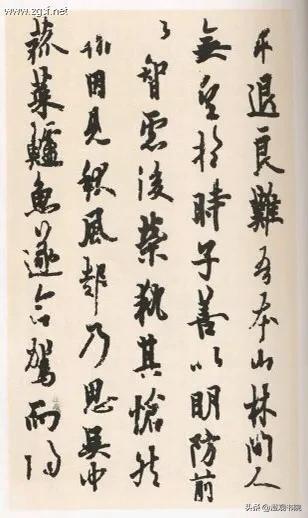 www.zgsf.net
求退良難吾本山林間人
無望於時子善以明防前
以智慮後榮執其愴然
翰因見秋風起乃思吳中
菰菜鱸魚遂命駕而歸
头条 @澄观书院